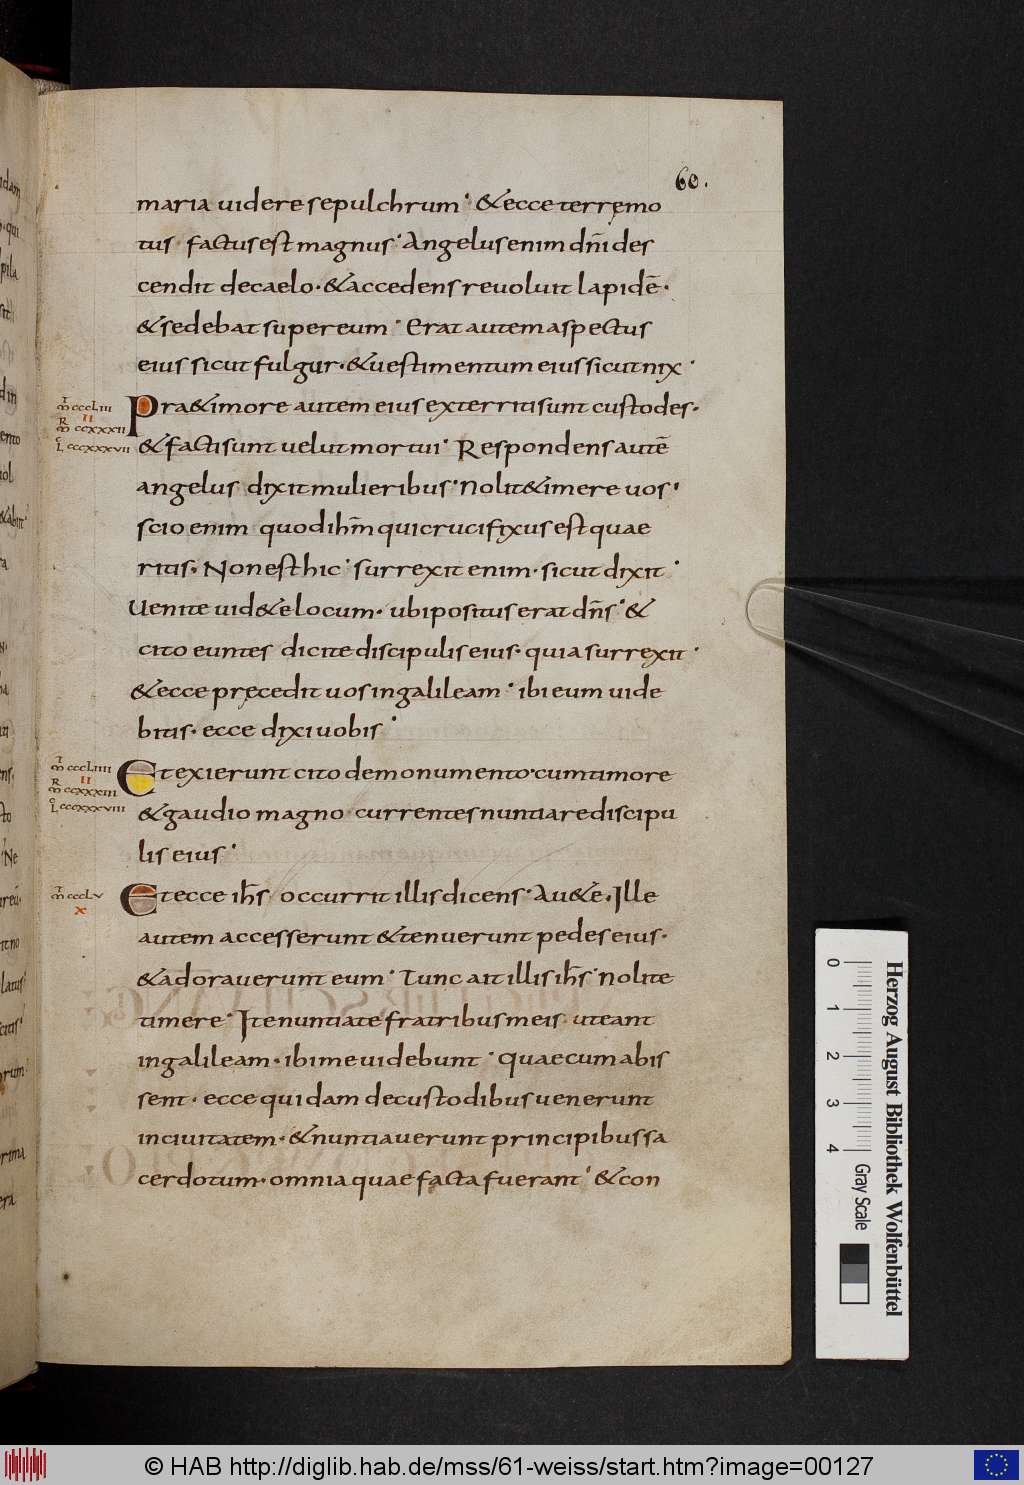 60.
maria uidere sepulchrum· &ecce terręmo
tus· factus est magnus· Angelus enim dñi des
cendit decaelo· &accedens reuoluit lapidē·
&sedebat super eum· Erat autem aspectus
eius sicut fulgur· &uestimentum eius sicut nix·
Pra&imore autem eius exterriti sunt custodes·
&facti sunt uelut mortui· Respondens autē
angelus dixit mulieribus· Nolit&imere uos·
scio enim quod ihm̄ qui crucifixus est quae
ritis· Non est hic· surrexit enim· sicut dixit·
Uenite uid&e locum· ubi positus erat dñs· &
cito euntes dicite discipulis eius· quia surrexit·
&ecce pręcedit uos in galileam· ibi eum uide
bitis· ecce dixi uobis·
Et exierunt cito de monumento· cum timore
&gaudio magno currentes nuntiare discipu
lis eius·
Et ecce ih̄s occurrit illis dicens· Au&e· Ille
autem accesserunt &tenuerunt pedes eius·
&adorauerunt eum· Tunc ait illis ih̄s· Nolite
timere· Ite nuntiate fratribus meis· ut eant
in galileam· ibi me uidebunt· Quae cum abis
sent· ecce quidam de custodibus uenerunt
in ciuitatem· &nuntiauerunt principibus sa
cerdotum· omnia quae facta fuerant· &con
T
m̄ cccLiii
II
R
m̄ ccxxxii
c
L cccxxxvii
T
m̄ cccLiiii
II
R
m̄ ccxxxiii
c
L cccxxxviii
T
m̄ cccLv
x
0 1 2 3 4
Gray Scale
Herzog August Bibliothek Wolfenbüttel
© HAB http://diglib.hab.de/mss/61-weiss/start.htm?image=00127